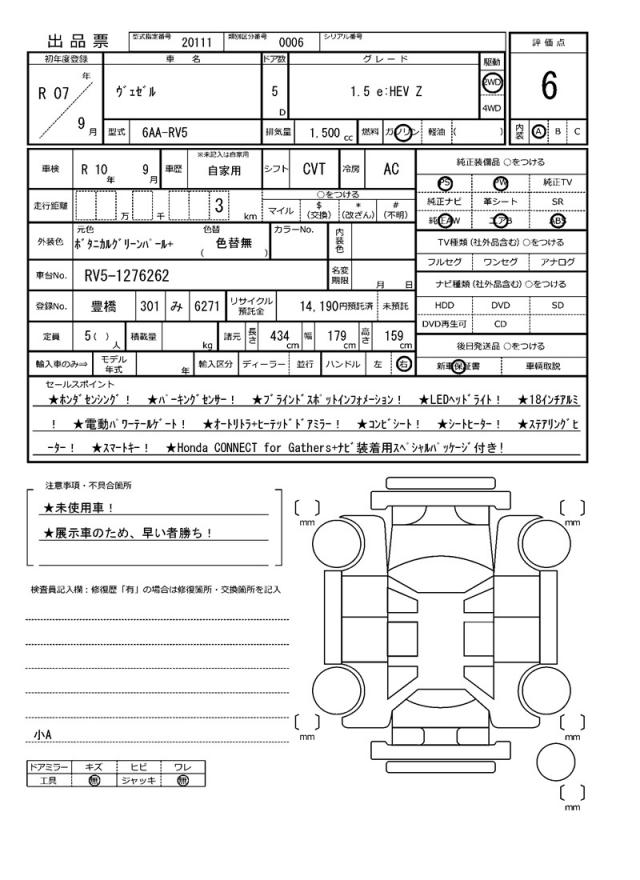 出品票 型式指定番号 20111 類別区分番号 0006 シリアル番号
評価点
初年度登録 車名 ドア数 グレード 駆動
R 07 年 ヴェゼル 5 D 1.5 e:HEV Z 2WD 6
9 月 4WD
型式 6AA-RV5 排気量 1.500 cc 燃料 ガソリン 軽油 ( ) 内装 A B C
車検 R 10 年 9 月 車歴 ※未記入は自家用 自家用 シフト CVT 冷房 AC
純正装備品 ○をつける
PS PW 純正TV
純正ナビ 革シート SR
純正AW エアB ABS
走行距離 万 千 3 km ○をつける
マイル $(交換) *(改ざん) #(不明)
外装色 元色 ボタニカルグリーンパール+ 色替 ( 色替無 ) カラーNo. 内装色
TV種類 (社外品含む) ○をつける
フルセグ ワンセグ アナログ
車台No. RV5-1276262 名変期限 月 日
ナビ種類 (社外品含む) ○をつける
登録No. 豊橋 301 み 6271 リサイクル預託金 14,190円預託済 未預託
HDD DVD SD
DVD再生可 CD
定員 5( ) 人 積載量 kg 諸元 長さ 434 cm 幅 179 cm 高さ 159 cm
後日発送品 ○をつける
輸入車のみ⇒ モデル年式 年 輸入区分 ディーラー 並行 ハンドル 左 右
新車保証書 車輌取説
セールスポイント
★ホンダセンシング! ★パーキングセンサー! ★ブラインドスポットインフォメーション! ★LEDヘッドライト! ★18インチアルミ
! ★電動パワーテールゲート! ★オートリトラ+ヒーテッドドアミラー! ★コンビシート! ★シートヒーター! ★ステアリングヒ
ーター! ★スマートキー! ★Honda CONNECT for Gathers+ナビ装着用スペシャルパッケージ付き!
注意事項・不具合箇所
★未使用車!
★展示車のため、早い者勝ち!
検査員記入欄:修復歴「有」の場合は修復箇所・交換箇所を記入
小A
ドアミラー キズ ヒビ ワレ
工具 無 ジャッキ 無
[ ] mm [ ] mm
[ ] mm [ ] mm
[ ] mm